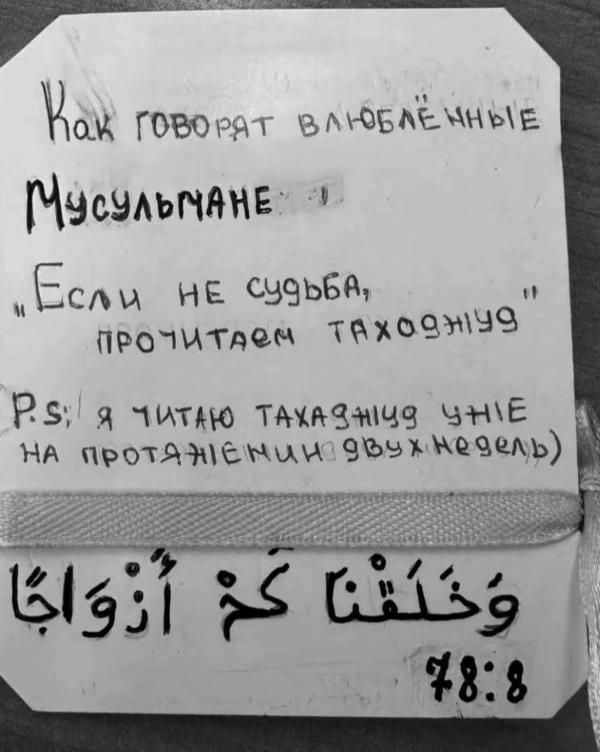 Как говорят влюблённые
Мусульмане
„Если не судьба,
прочитаем тахаджуд"
P.S; я читаю тахаджуд уже
на протяжении двух недель)
وَخَلَقْنَا كُمْ أَزْوَاجًا
78:8